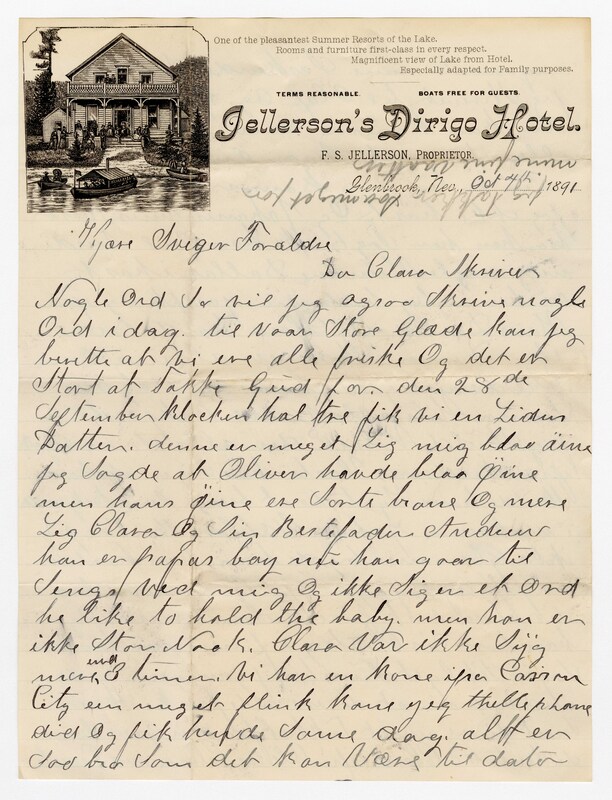 One of the pleasantest Summer Resorts of the Lake.
Rooms and furniture first-class in every respect.
Magnificent view of Lake from Hotel.
Especially adapted for Family purposes.
TERMS REASONABLE. BOATS FREE FOR GUESTS.
Jellerson's Dirigo Hotel.
F. S. JELLERSON, PROPRIETOR.
Glenbrook, Nev., Oct 4th 1891
Kjære Sviger Forældre
Da Clara Skriver
Nogle Ord So vil jeg agsoo Skrive nogle
Ord i dag. til vaar Store Glæde kan jeg
berette at vi ere alle friske Og det er
Stort at Takke Gud for. den 28de
September klocken hal tre fik vi en Liden
Datter. denne er meget Lig mig blaa öine
jeg Sagde at Oliver havde blaa Öine
men hans öine ere Sorte brune Og mere
Lig Clara Og Sin Bestefader Andrew
han er papas boy nu han gaar til
Sengs ved mig Og ikke Siger et Ord
he like to hold the baby. men han er
ikke Stor Nook. Clara Var ikke Syg
mere end 3 timer. Vi har en kone ifra Carson
City en meget flink kone jeg thellephone
did Og fik hende Same dag. alt er
Soo bra Som det kan Være til dato